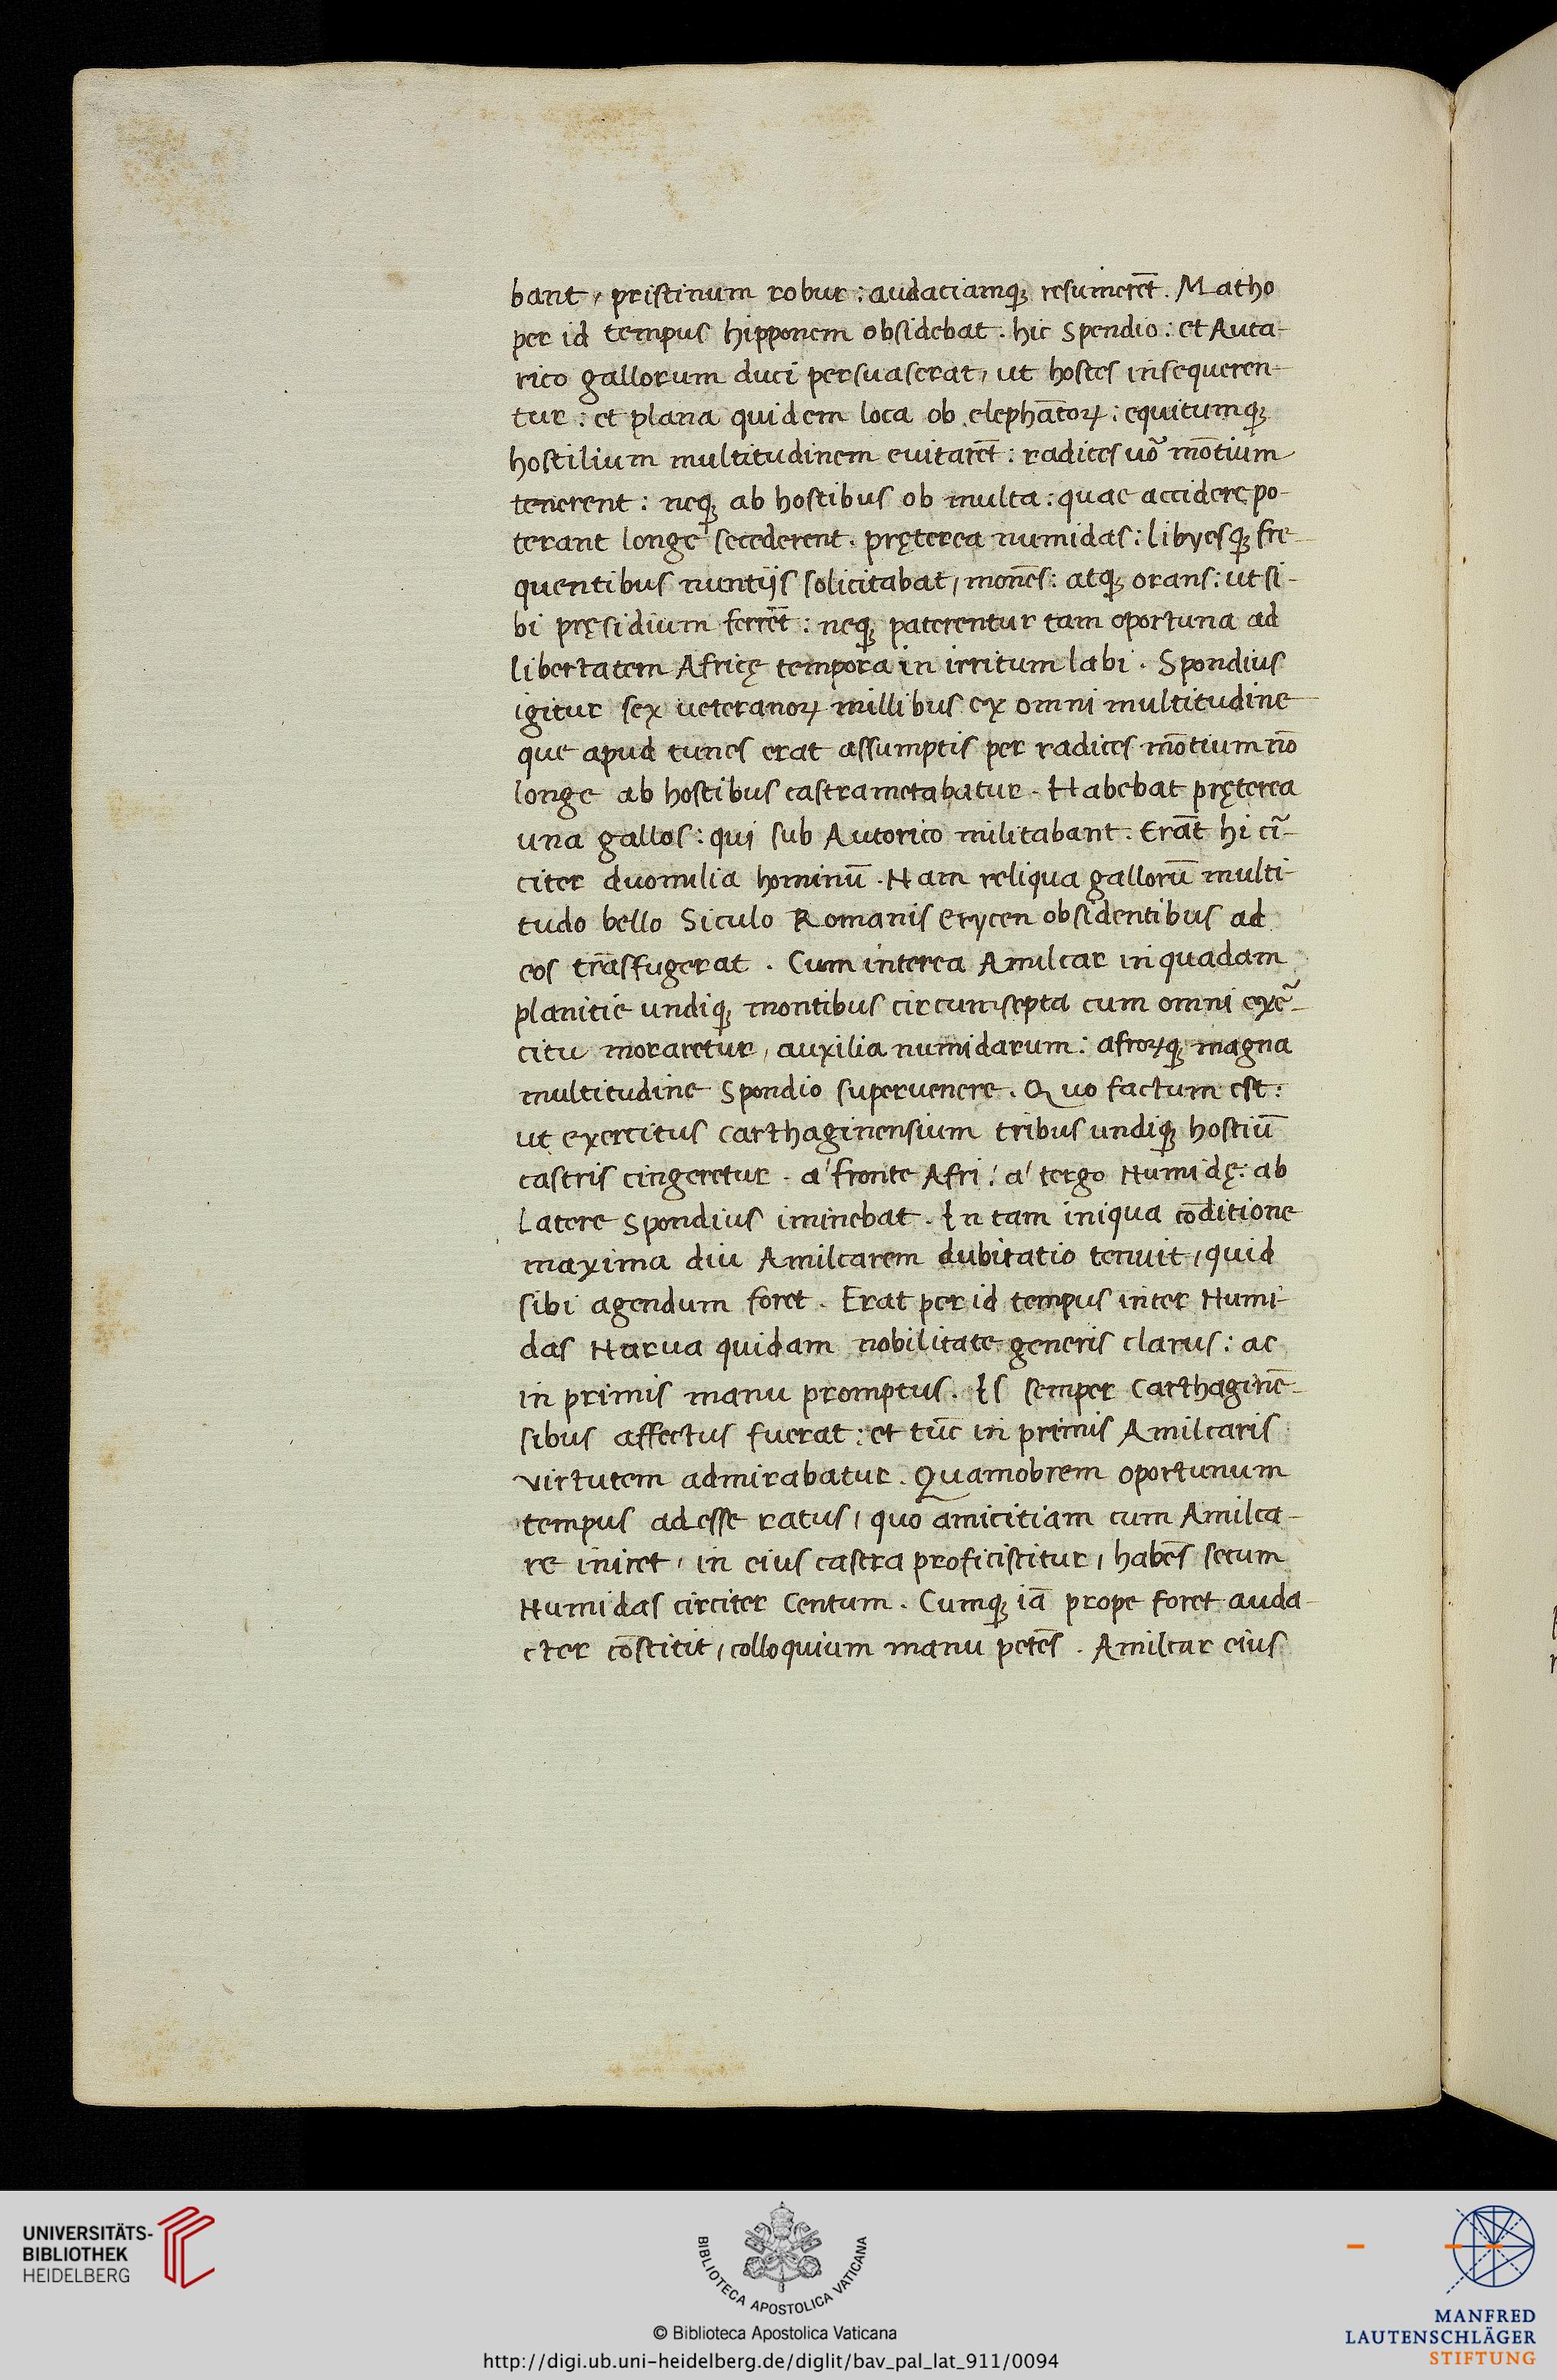 bant, pristinum robur: audaciamqꝫ resumerēt. Matho
per id tempus hipponem obsidebat. hic Spendio: et Auta-
rico gallorum duci persuaserat, ut hostes insequeren-
tur: et plana quidem loca ob elephātoꝝ: equitumqꝫ
hostilium multitudinem euitarēt: radices uō mōtium
tenerent: neqꝫ ab hostibus ob multa: quae accidere po-
terant longe secederent. pręterea numidas: libyesqꝫ fre-
quentibus nuntijs solicitabat, monēs: atqꝫ orans: ut si-
bi pręsidium ferrēt: neqꝫ paterentur tam oportuna ad
libertatem Africę tempora in irritum labi. Spondius
igitur sex ueteranoꝝ millibus ex omni multitudine
que apud tunes erat assumptis per radices mōtium nō
longe ab hostibus castrametabatur. Habebat pręterea
una gallos: qui sub Autorico militabant. Erāt hi cī-
citer duomilia hominū. Nam reliqua gallorū multi-
tudo bello Siculo Romanis Erycen obsidentibus ad
eos trāsfugerat. Cum interea Amilcar in quadam
planitie undiqꝫ montibus circumsepta cum omni exē-
citu moraretur, auxilia numidarum: afroꝝqꝫ magna
multitudine Spondio superuenere. Quo factum est:
ut exercitus Carthaginensium tribus undiqꝫ hostiū
castris cingeretur. a' fronte Afri: a' tergo Numidę: ab
latere Spondius iminebat. In tam iniqua cōditione
maxima diu Amilcarem dubitatio tenuit, quid
sibi agendum foret. Erat per id tempus inter Numi-
das Narua quidam nobilitate generis clarus: ac
in primis manu promptus. Is semper Carthaginē-
sibus affectus fuerat: et tūc in primis Amilcaris
virtutem admirabatur. Quamobrem oportunum
tempus adesse ratus, quo amicitiam cum Amilca-
re iniret, in eius castra proficiscitur, habēs secum
Numidas circiter Centum. Cumqꝫ iā prope foret auda-
cter cōstitit, colloquium manu petēs. Amilcar eius
UNIVERSITÄTS-
BIBLIOTHEK
HEIDELBERG
BIBLIOTECA APOSTOLICA VATICANA
© Biblioteca Apostolica Vaticana
http://digi.ub.uni-heidelberg.de/diglit/bav_pal_lat_911/0094
MANFRED
LAUTENSCHLÄGER
STIFTUNG